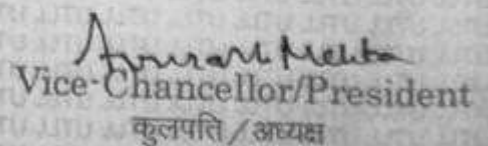 Anurag Mehta
Vice-Chancellor/President
कुलपति / अध्यक्ष